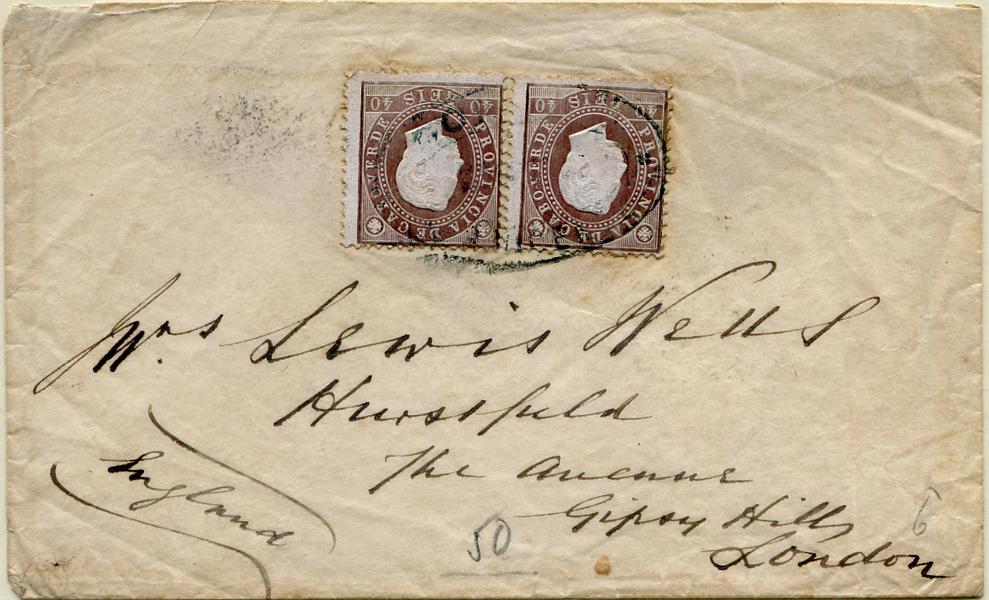 40 REIS 40
PROVINCIA DE CABO VERDE
40 REIS 40
PROVINCIA DE CABO VERDE
Mrs Lewis Wells
Hurstfield
The Avenue
Gipsy Hill
London
England
50
6